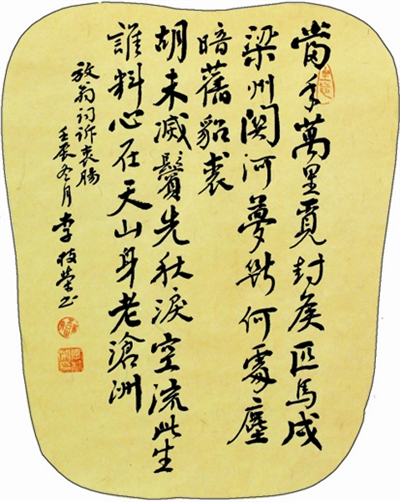 當年萬里覓封侯匹馬戍
梁州関河夢斷何處塵
暗舊貂裘
胡未滅鬢先秋淚空流此生
誰料心在天山身老滄洲
放翁词訴衷腸
壬辰冬月李枝荣书